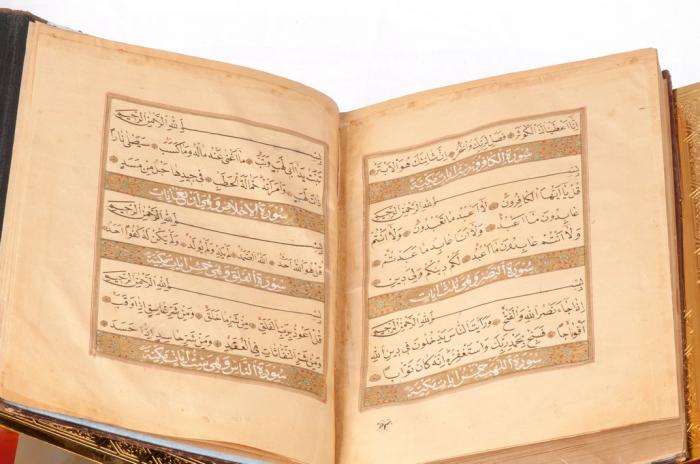 إنا أعطيناك الكوثر فصل لربك وانحر إن شانئك هو الأبتر
سورة الكافرون ست آيات مكية
بسم الله الرحمن الرحيم
قل يا أيها الكافرون لا أعبد ما تعبدون ولا أنتم
عابدون ما أعبد ولا أنا عابد ما عبدتم
ولا أنتم عابدون ما أعبد لكم دينكم ولي دين
سورة النصر وهي ثلث آيات
بسم الله الرحمن الرحيم
إذا جاء نصر الله والفتح ورأيت الناس يدخلون في دين الله
أفواجا فسبح بحمد ربك واستغفره إنه كان توابا
سورة اللهب خمس آيات مكية
بسم الله الرحمن الرحيم
تبت يدا أبي لهب وتب ما أغنى عنه ماله وما كسب سيصلى نارا
ذات لهب وامرأته حمالة الحطب في جيدها حبل من مسد
سورة الإخلاص وهي أربع آيات
بسم الله الرحمن الرحيم
قل هو الله أحد الله الصمد لم يلد ولم يولد ولم يكن له كفوا أحد
سورة الفلق وهي خمس آيات مكية
بسم الله الرحمن الرحيم
قل أعوذ برب الفلق من شر ما خلق ومن شر غاسق إذا وقب
ومن شر النفاثات في العقد ومن شر حاسد إذا حسد
سورة الناس وهي ست آيات مكية